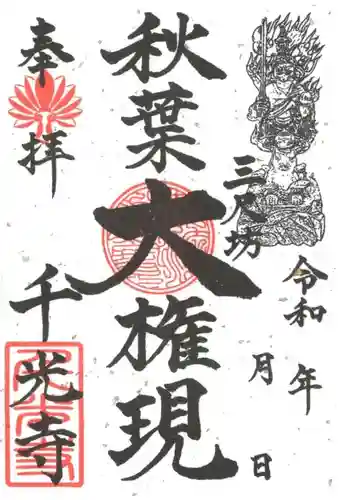 奉拝
秋葉大権現
三尺坊
千光寺
令和 年
月 日